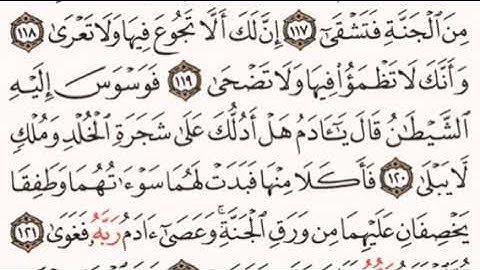 مِنَ ٱلْجَنَّةِ فَتَشْقَىٰٓ ١١٧ إِنَّ لَكَ أَلَّا تَجُوعَ فِيهَا وَلَا تَعْرَىٰ ١١٨
وَأَنَّكَ لَا تَظْمَؤُا۟ فِيهَا وَلَا تَضْحَىٰ ١١٩ فَوَسْوَسَ إِلَيْهِ
ٱلشَّيْطَٰنُ قَالَ يَٰٓـَٔادَمُ هَلْ أَدُلُّكَ عَلَىٰ شَجَرَةِ ٱلْخُلْدِ وَمُلْكٍ
لَّا يَبْلَىٰ ١٢٠ فَأَكَلَا مِنْهَا فَبَدَتْ لَهُمَا سَوْءَٰتُهُمَا وَطَفِقَا
يَخْصِفَانِ عَلَيْهِمَا مِن وَرَقِ ٱلْجَنَّةِ ۚ وَعَصَىٰٓ ءَادَمُ رَبَّهُۥ فَغَوَىٰ ١٢١